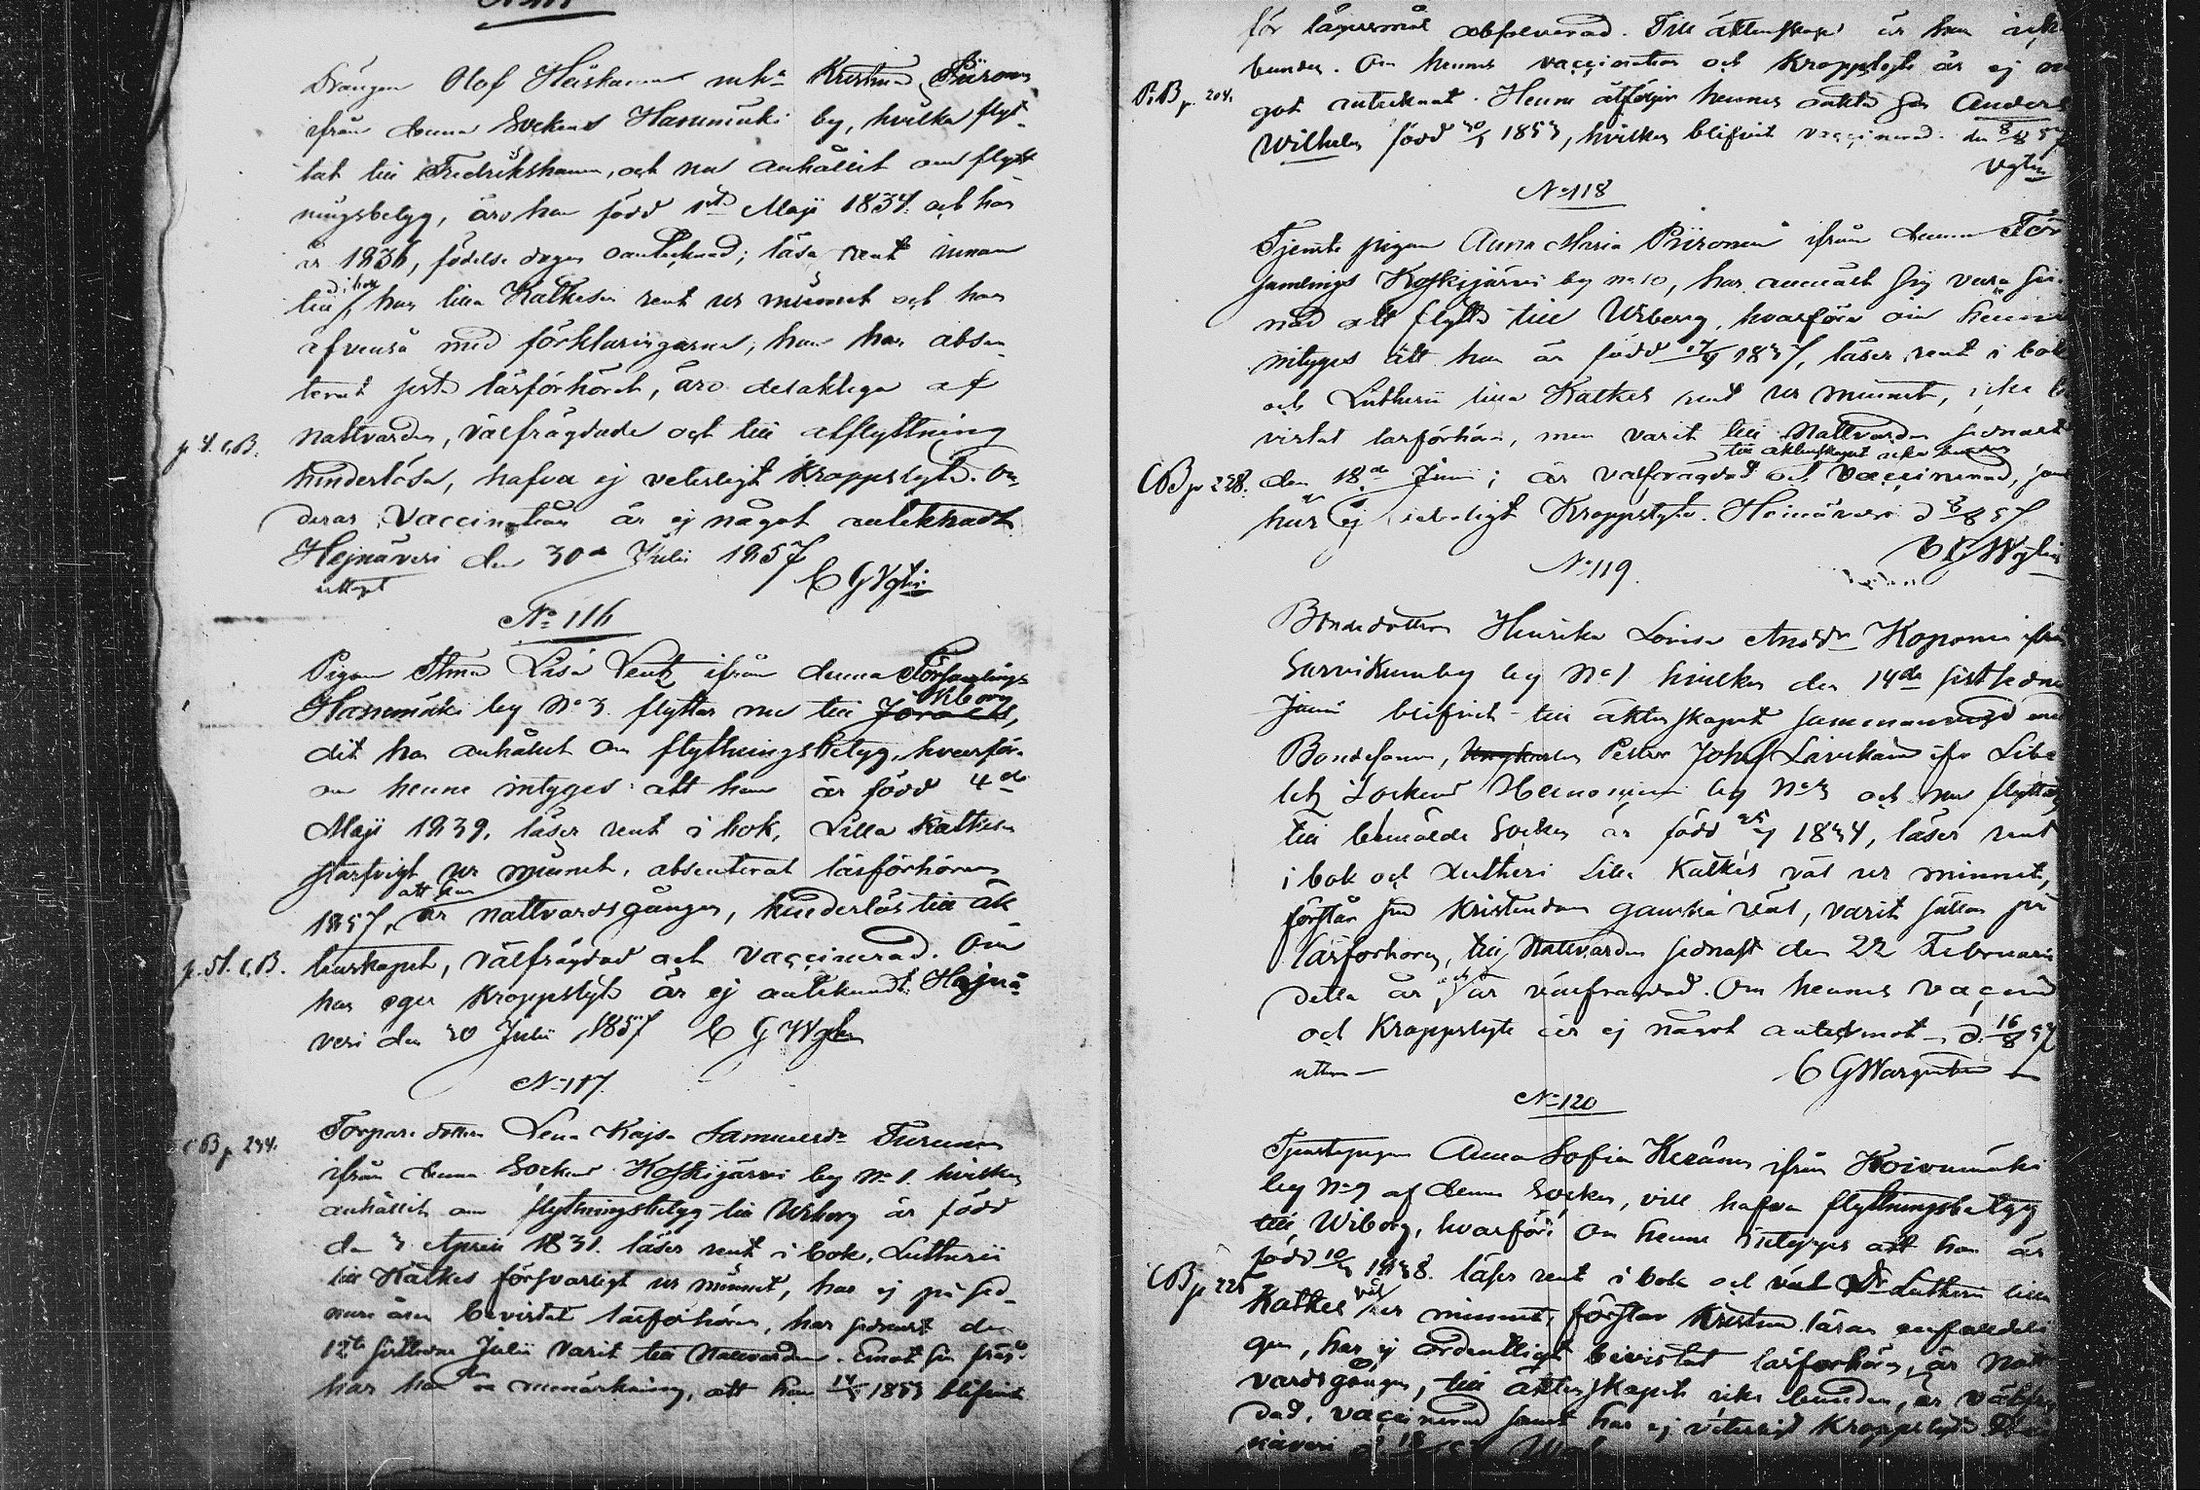 Drängen Olof Heiskanen och Kristina Piironen
ifrån denna Sockens Hasumäki by, hvilka flyt-
tat till Fredrikshamn, och nu anhållit om flytt
ningsbetyg, äro han född 1sta Maji 1834. och hon
år 1836, födelse dagen oantecknad; läsa rent innan
till, han lilla Katkesen rent ur minnet och hon
äfvenså med förklaringarna, han har absen-
terat sista läsförhöret, äro delaktiga af
p. 4. C.B. Nattvarden, välfrägdade och till afflyttning
hinderlösa, hafva ej veterligt Kroppslyte. Om
deras Vaccination är ej något antecknadt
Hejnävesi den 30de Julii 1857
uttaget C G Wgln
No 116
Pigan Anna Lisa Ventz ifrån denna Församlings
Wiborg
Hasumäki by No 3. flyttar nu till
dit hon anhållit om flyttningsbetyg, hvarför
om henne intygas att hon är född 4de
Maji 1839, läser rent i bok, Lilla Katkesen
försvarligt ur minnet, absenterat läsförhören
att hon
1857, är nattvardsgången, hinderlös till äk-
p. 51. C.B. tenskapet, välfrägdad och vaccinerad. Om
hon eger Kroppslyte är ej antecknadt. Hejnä-
vesi den 30 Julii 1857 C G Wgln
No 117.
CB p. 244. Torpare dottren Lena Kajsa Samuelsdr Turunen
ifrån denna Socken Koskijärvi by No 1. hvilken
anhållit om flyttningsbetyg till Wiborg är född
den 3 April 1831. läser rent i bok, Lutherii
lilla Katkes försvarligt ur minnet, har ej på sed-
nare åren bevistat läsförhören, har sednast den
12te sistledne Julii varit till Nattvarden. Emot sin fräjd
har hon en anmärkning, att hon 14/5 1853 blifvit
för lägersmål absolverad. Till äktenskap är hon icke
bunden. Om hennes vaccination och Kroppslyte är ej nå
P.B p. 204. got antecknat. Henne åtföljer hennes oäkta son Anders
Wilhelm född 30/1 1853, hvilken blifvit vaccinerad. den 8/8 57
Wgln
No 118
Tjenste pigan Anna Maria Piironen ifrån denna För
samlings Koskijärvi by no 10, har anmält sig vara sin-
nad att flytta till Wiborg, hvarföre om henne
intygas att hon är född 17/4 1837, läser rent i bok
och Lutherii lilla Katkes rent ur minnet, icke be
vistat läsförhören, men varit till Nattvarden sednast
till äktenskapet icke bunden
CB p 238. den 18de Juni; är välfrägdad och Vaccinerad, samt
har ej veterligt Kroppslyte. Heinävesi d 8/8 57
C G Wgln
No 119.
Bondedottren Henrika Lovisa Andsdr Koponen ifrån
Sarvikumby by No 1 hvilken den 14de sistledne
Junii blifvit till äktenskapet sammanvigd med
Bondesonen, Petter Johan Laukkanen ifrån Libe
litz Sockens by No 3 och nu flyttar
till bemälde Socken är född 1834, läser rent
i bok och Lutheri Lilla Katkes väl ur minnet,
förstår sin Kristendom ganska väl, varit sällan på
läsförhören, till Nattvarden sednast den 22 Februarii
detta år, och är välfrägdad. Om hennes vaccina
och Kroppslyte är ej något antecknat d. 16/8 57
C G Wargentin
No 120
Tjenstepigan Anna Sofia Keränen ifrån Koivumäki
by No 9 af denna Socken, vill hafva flyttningsbetyg
till Wiborg, hvarför om henne intygas att hon är
CB p 225 född 10/3 1838. läser rent i bok och Lutherii lilla
Katkes väl ur minnet, förstår Kristendom läran enfaldeli
gen, har ej ordentligt bevistat läsförhören, är Natt
vardsgången, till äktenskapet icke bunden, är välfräg
dad, vaccinerad samt har ej veterligt Kroppslyte. Hei
nävesi d 18